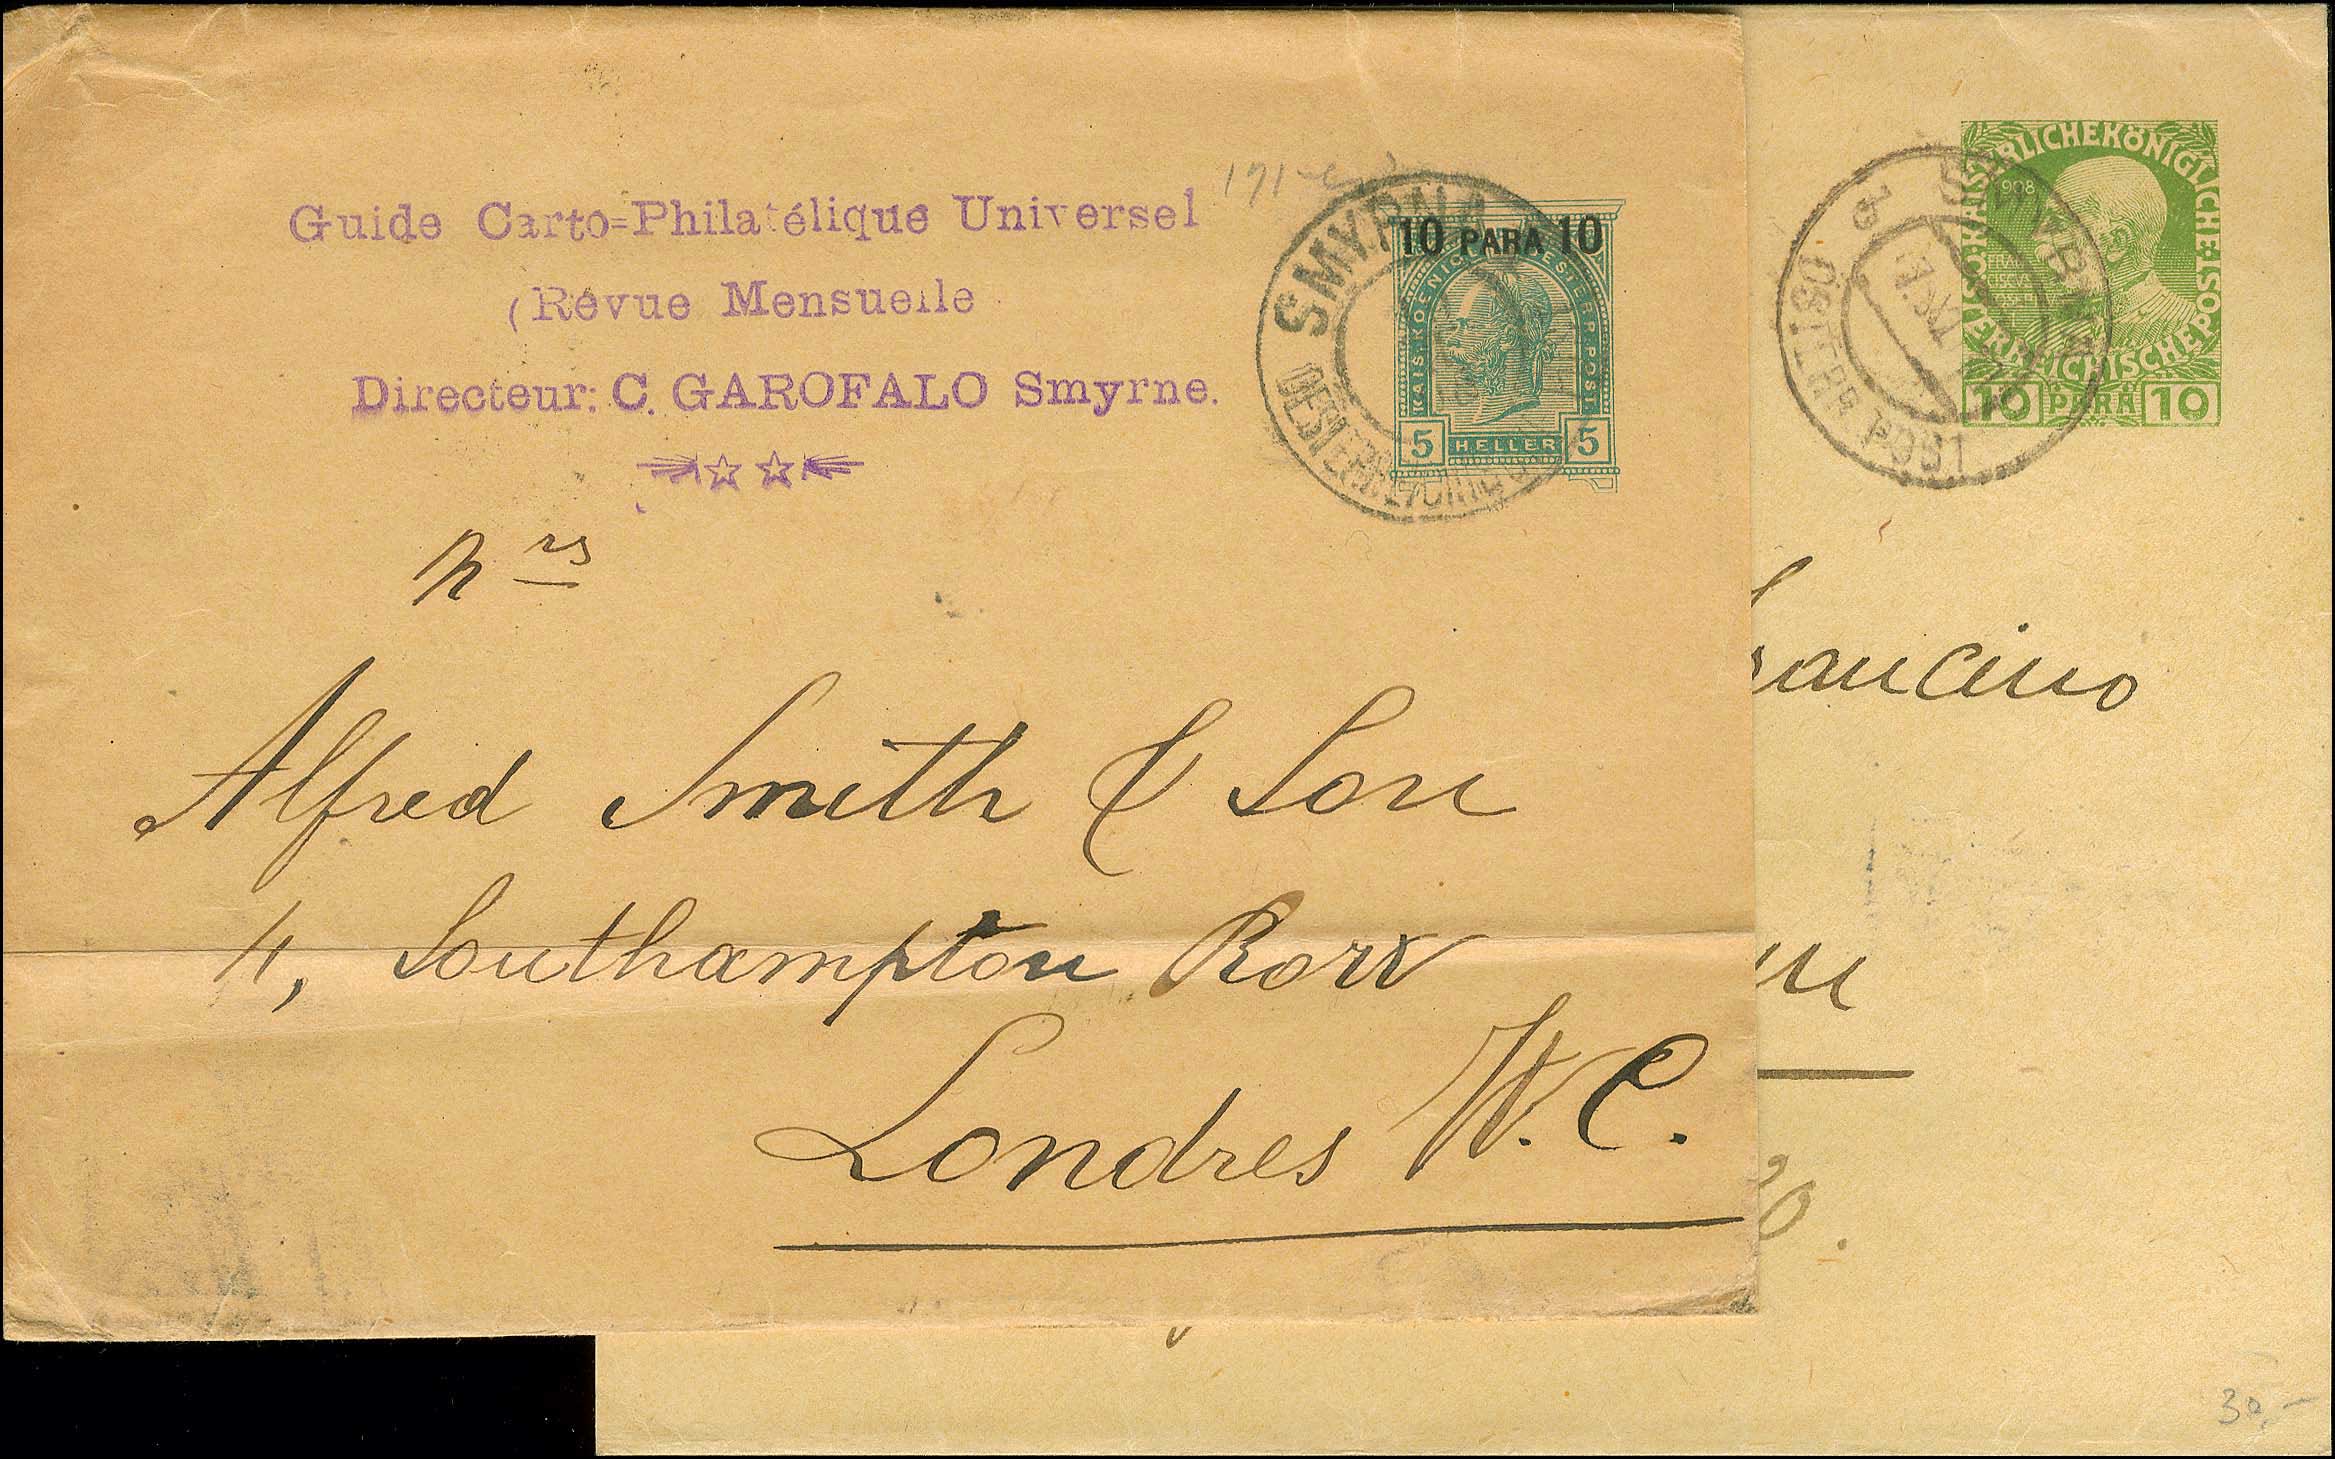 Guide Carto-Philatélique Universel
(Revue Mensuelle
Directeur: C. GAROFALO Smyrne.
171
SMYRNA
OESTERREICHISCHE
10 PARA 10
KAIS. KOENIGL. OESTERR. POST.
5 HELLER 5
Mrs
Alfred Smith & Son
4, Southampton Row
Londres W. C.
1908
KAISERLICHEKÖNIGLICHE
ÖSTERREICHISCHE POST
10 PARA 10
SMYRNA
ÖSTERR. POST
ancino
30,-